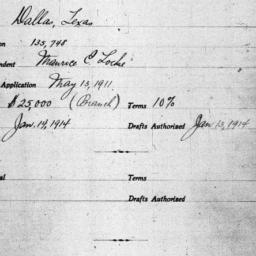 Dallas, Texas
on 135,748
ndent Maurice C. Locke
Application May 13, 1911.
$25,000 (Branch) Terms 10%
Jan. 19, 1914 Drafts Authorized Jan 13, 1914
al Terms
Drafts Authorized